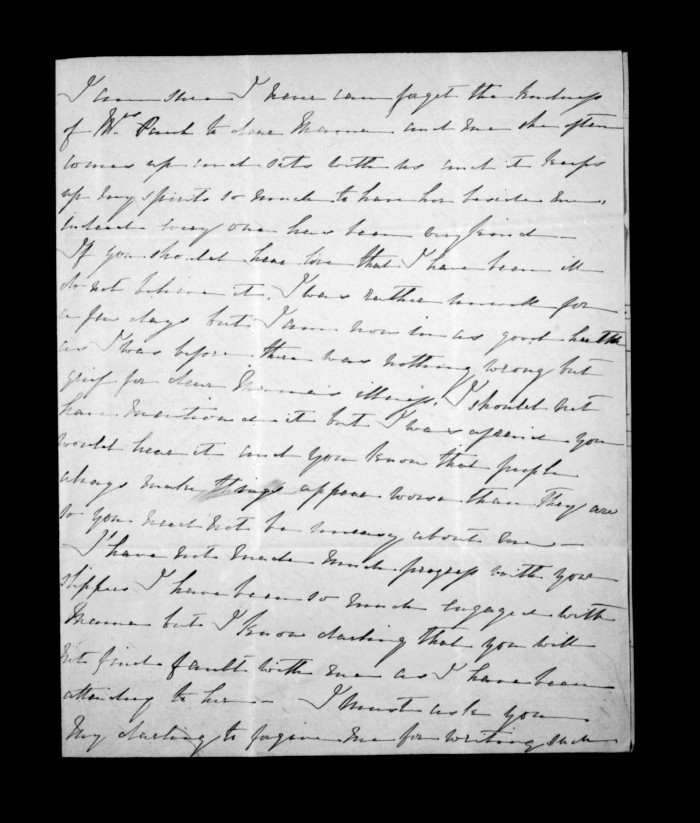 I am sure I never can forget the kindness
of Mrs. Paul to dear Mama and me she often
comes up and sits with us and it keeps
up my spirits so much to have her beside me,
indeed every one has been very kind —
If you should hear love that I have been ill
do not believe it. I was rather unwell for
a few days but I am now in as good health
as I was before there was nothing wrong but
grief for dear Mama's illness. I should not
have mentioned it but I was afraid you
would hear it and you know that people
always make things appear worse than they are
so you need not be uneasy about me —
I have not made much progress with your
slippers I have been so much engaged with
Mama but I know darling that you will
not find fault with me as I have been
attending to her — I must ask you
my darling to forgive me for writing such